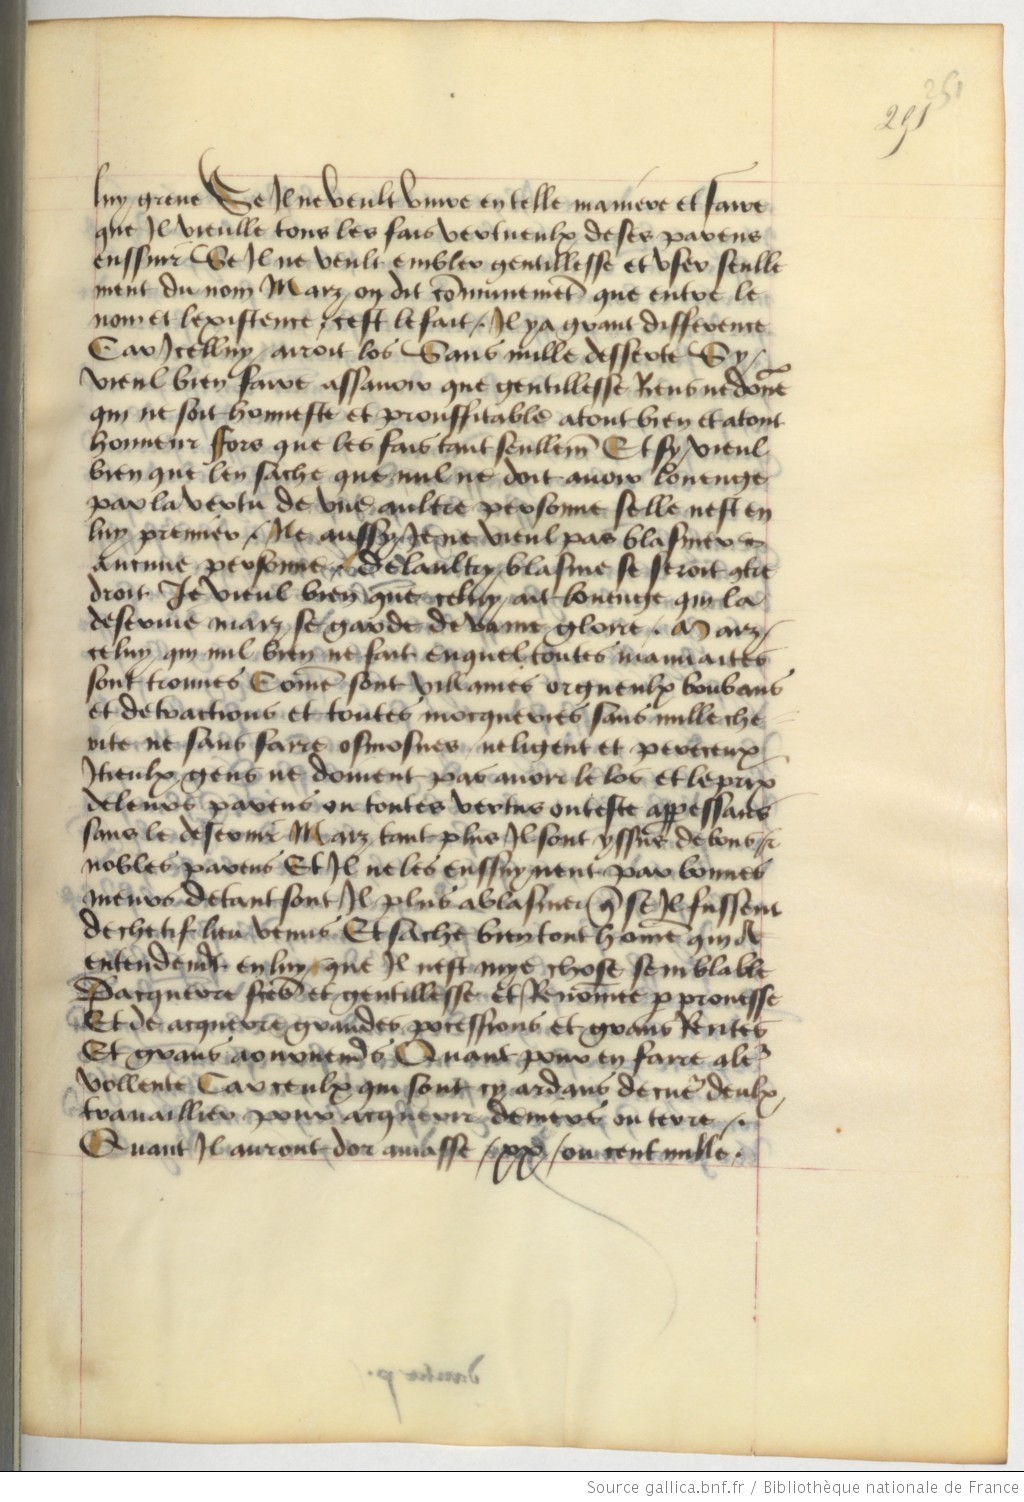 251
291
luy greue Se Il ne veult viure en telle maniere et faire
que Il vieulle tous les fais vertueulx de ses parens
enssuir Se Il ne veult embler gentillesse et vser seulle
ment du nom Marz on dit cōmunemēt que entre le
nom et lexistence / cest le fait /. Il y a grant difference
Car Icelluy / auroit los Sans nulle desserte Sy /
vieul bien faire assauoir que gentillesse Riens ne dōne
qui ne soit honneste et prouffitable a tout bien et a tout
honneur ffors que les fais tant seullem̄ Et sy / vieul
bien que len sache que nul ne doit auoir louenge
par la vertu de vne aultre personne selle nest en
luy premier /. Ne aussy / Je ne vieul pas blasmer
aucune personne / de laultry / blasme se seroit ꝯtre
droit Je vieul bien que celuy / ait louenge qui la
deseruie marz se garde de vaine glorie . Marz /
celuy qui nul bien ne fait en quel toutes mauuaites
sont trouues Cōme sont villaines orgueulx boubans
et detractions et toutes mocqueries sans nulle che
rite ne sans faire osmosnes neligent et pereceux
Itieulx gens ne doiuent pas auoir le los et le prix
de leurs parens ou toutes vertus ont este appessans
sans le deseruir Marz tant plus Il sont yssus de bons /
nobles parens Et Il ne les enssuyuent par bonnes
meurs de tant sont Il plus a blasmer q̄ se Il fussent
de chetif lieu venus Et sache bien tout hōme qui a
entendemt en luy que Il nest mye chose semblable
Dacquerre et gentillesse et Renōmee p prouesse
Et de acquerre grandes pocessions et grans Rentes
Et grans aournemēs Quant pour en faire a le
vollente Car ceulx qui sont cy ardans de cuer deulx /
trauaillier pour acquerir deniers ou terre /.
Quant Il auront dor amasse / xx / ou cent mille .
Source gallica.bnf.fr / Bibliothèque nationale de France